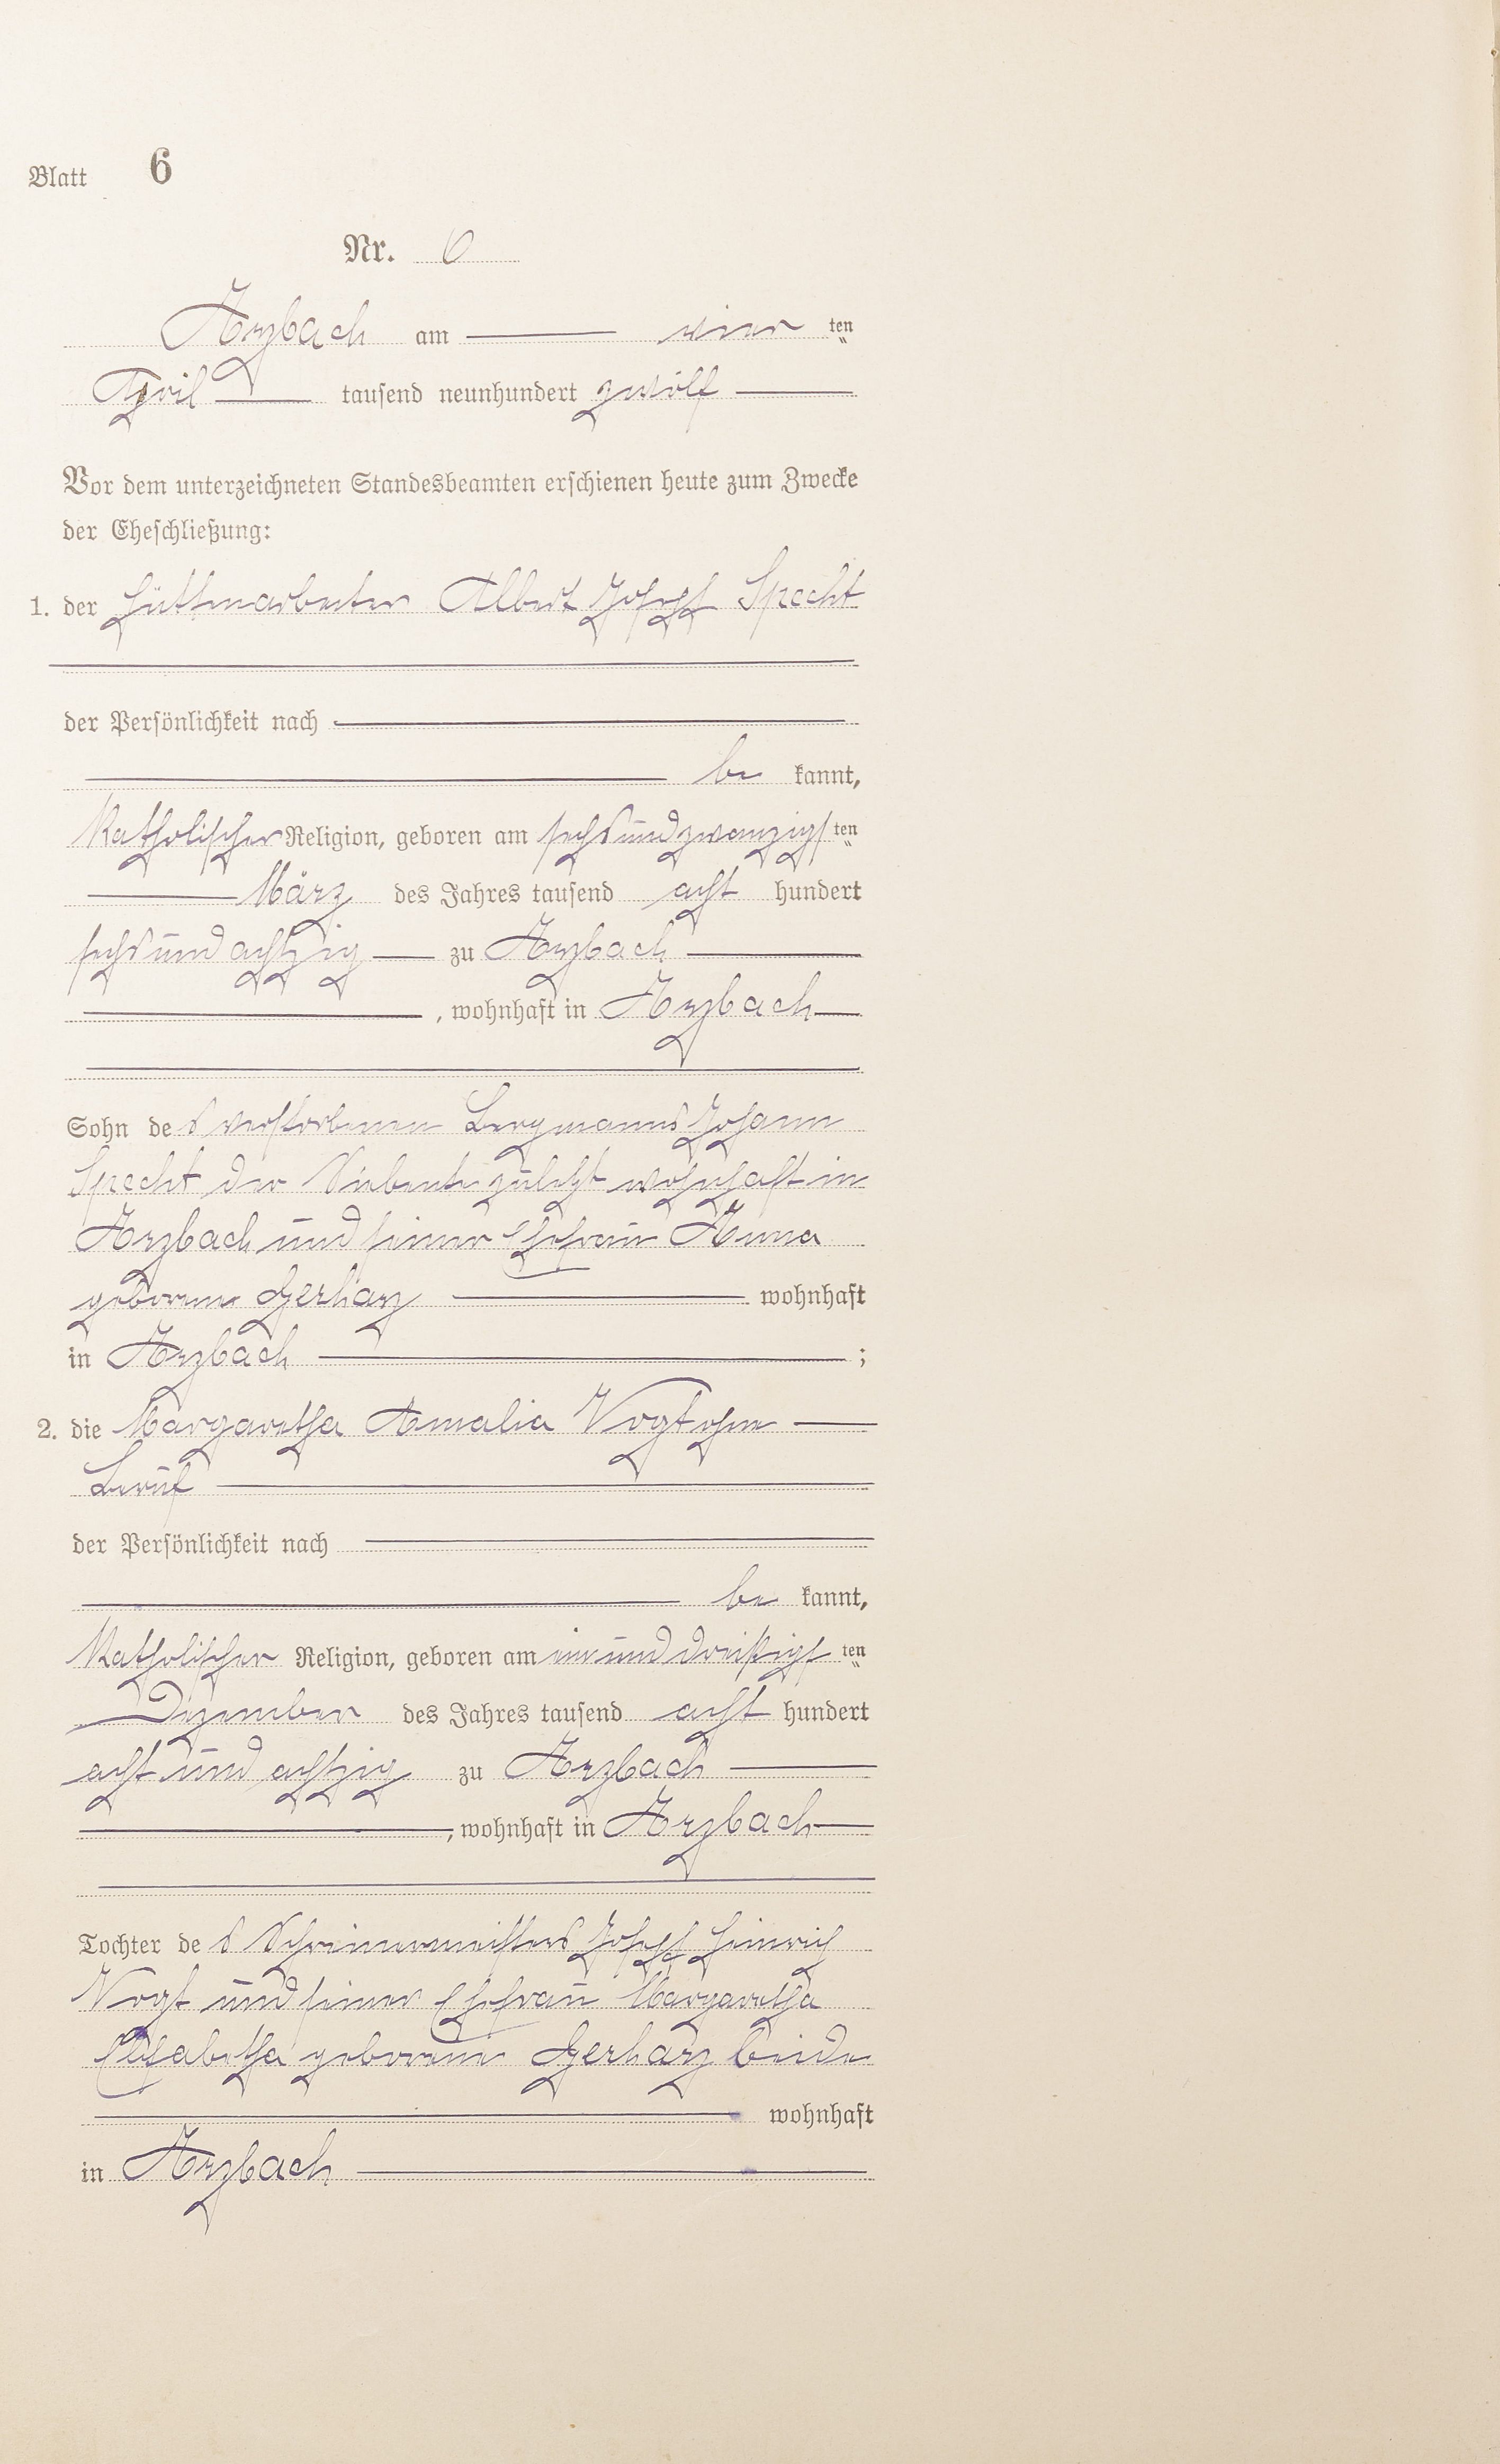 Blatt 6
Nr. 6
Arzbach am vier ten
April tausend neunhundert zwölf
Vor dem unterzeichneten Standesbeamten erschienen heute zum Zwecke
der Eheschließung:
1. der Hüttenarbeiter Albert Joseph Specht
der Persönlichkeit nach
be kannt,
Katholischer Religion, geboren am sechsundzwanzigs ten
März des Jahres tausend acht hundert
sechsundachtzig zu Arzbach
, wohnhaft in Arzbach
Sohn de s verstorbenen Bergmanns Johann
Specht der Siebente zuletzt wohnhaft in
Arzbach und seiner Ehefrau Anna
geborene Gerharz wohnhaft
in Arzbach ;
2. die Margaretha Amalia Vogt ohne
Beruf
der Persönlichkeit nach
be kannt,
Katholischer Religion, geboren am einunddreißigs ten
Dezember des Jahres tausend acht hundert
acht und achtzig zu Arzbach
, wohnhaft in Arzbach
Tochter de s Schreinermeisters Joseph Heinrich
Vogt und seiner Ehefrau Margaretha
Elisabetha geborene Gerharz beide
wohnhaft
in Arzbach